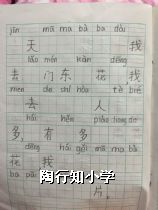 jīn mā mā bà ba dài
天 我
lǎo mén kàn dēng
去 门 东 花 找
men de shí hòu tè bié
去 人
hái hěn piào liang de
多 有 多
dēng hái gěi mā ma bà
花 我
陶行知小学
片